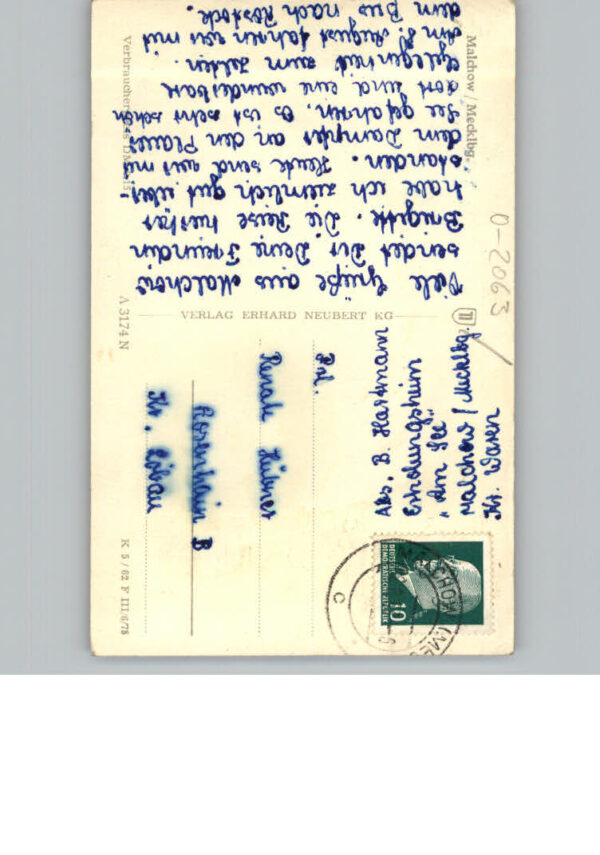 Malchow / Mecklbg.
Viele Grüße aus Malchow
sendet Dir Deine Freundin
Brigitte. Die Reise hierher
habe ich ziemlich gut über-
standen. Heute sind wir mit
dem Dampfer an den Plauer
See gefahren. Es ist sehr schön
dort und eine wunderbare
Gelegenheit zum Zelten.
Am 8. August fahren wir mit
dem Bus nach Rostock.
A 3174 N
VERLAG ERHARD NEUBERT KG
0-2063
Abs. B. Hartmann
Erholungsheim
"Am See"
Malchow / Mecklbg.
Kr. Waren
Frl.
Renate Hübner
Rosenhain B
Kr. Löbau
K 5 / 62 F III/6/78
DEUTSCHE
DEMOKRATISCHE REPUBLIK
10
MALCHOW (MECKL
c